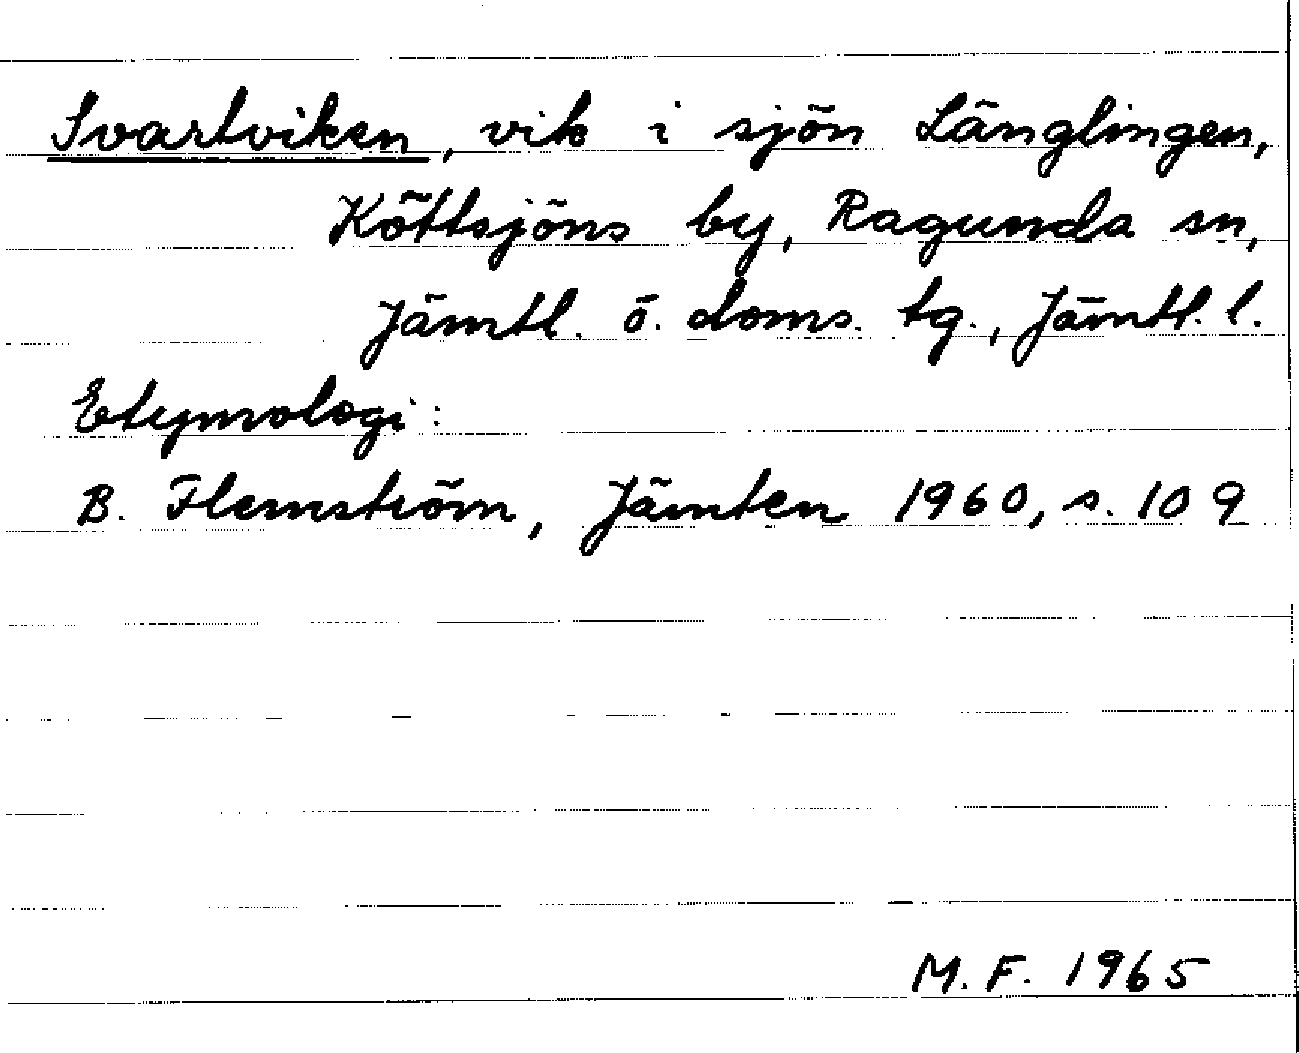 Svartviken, vik i sjön Länglingen,
Köttsjöns by, Ragunda sn,
Jämtl. ö. doms. tg., Jämtl. l.
Etymologi:
B. Flemström, Jämten 1960, s. 109
M. F. 1965